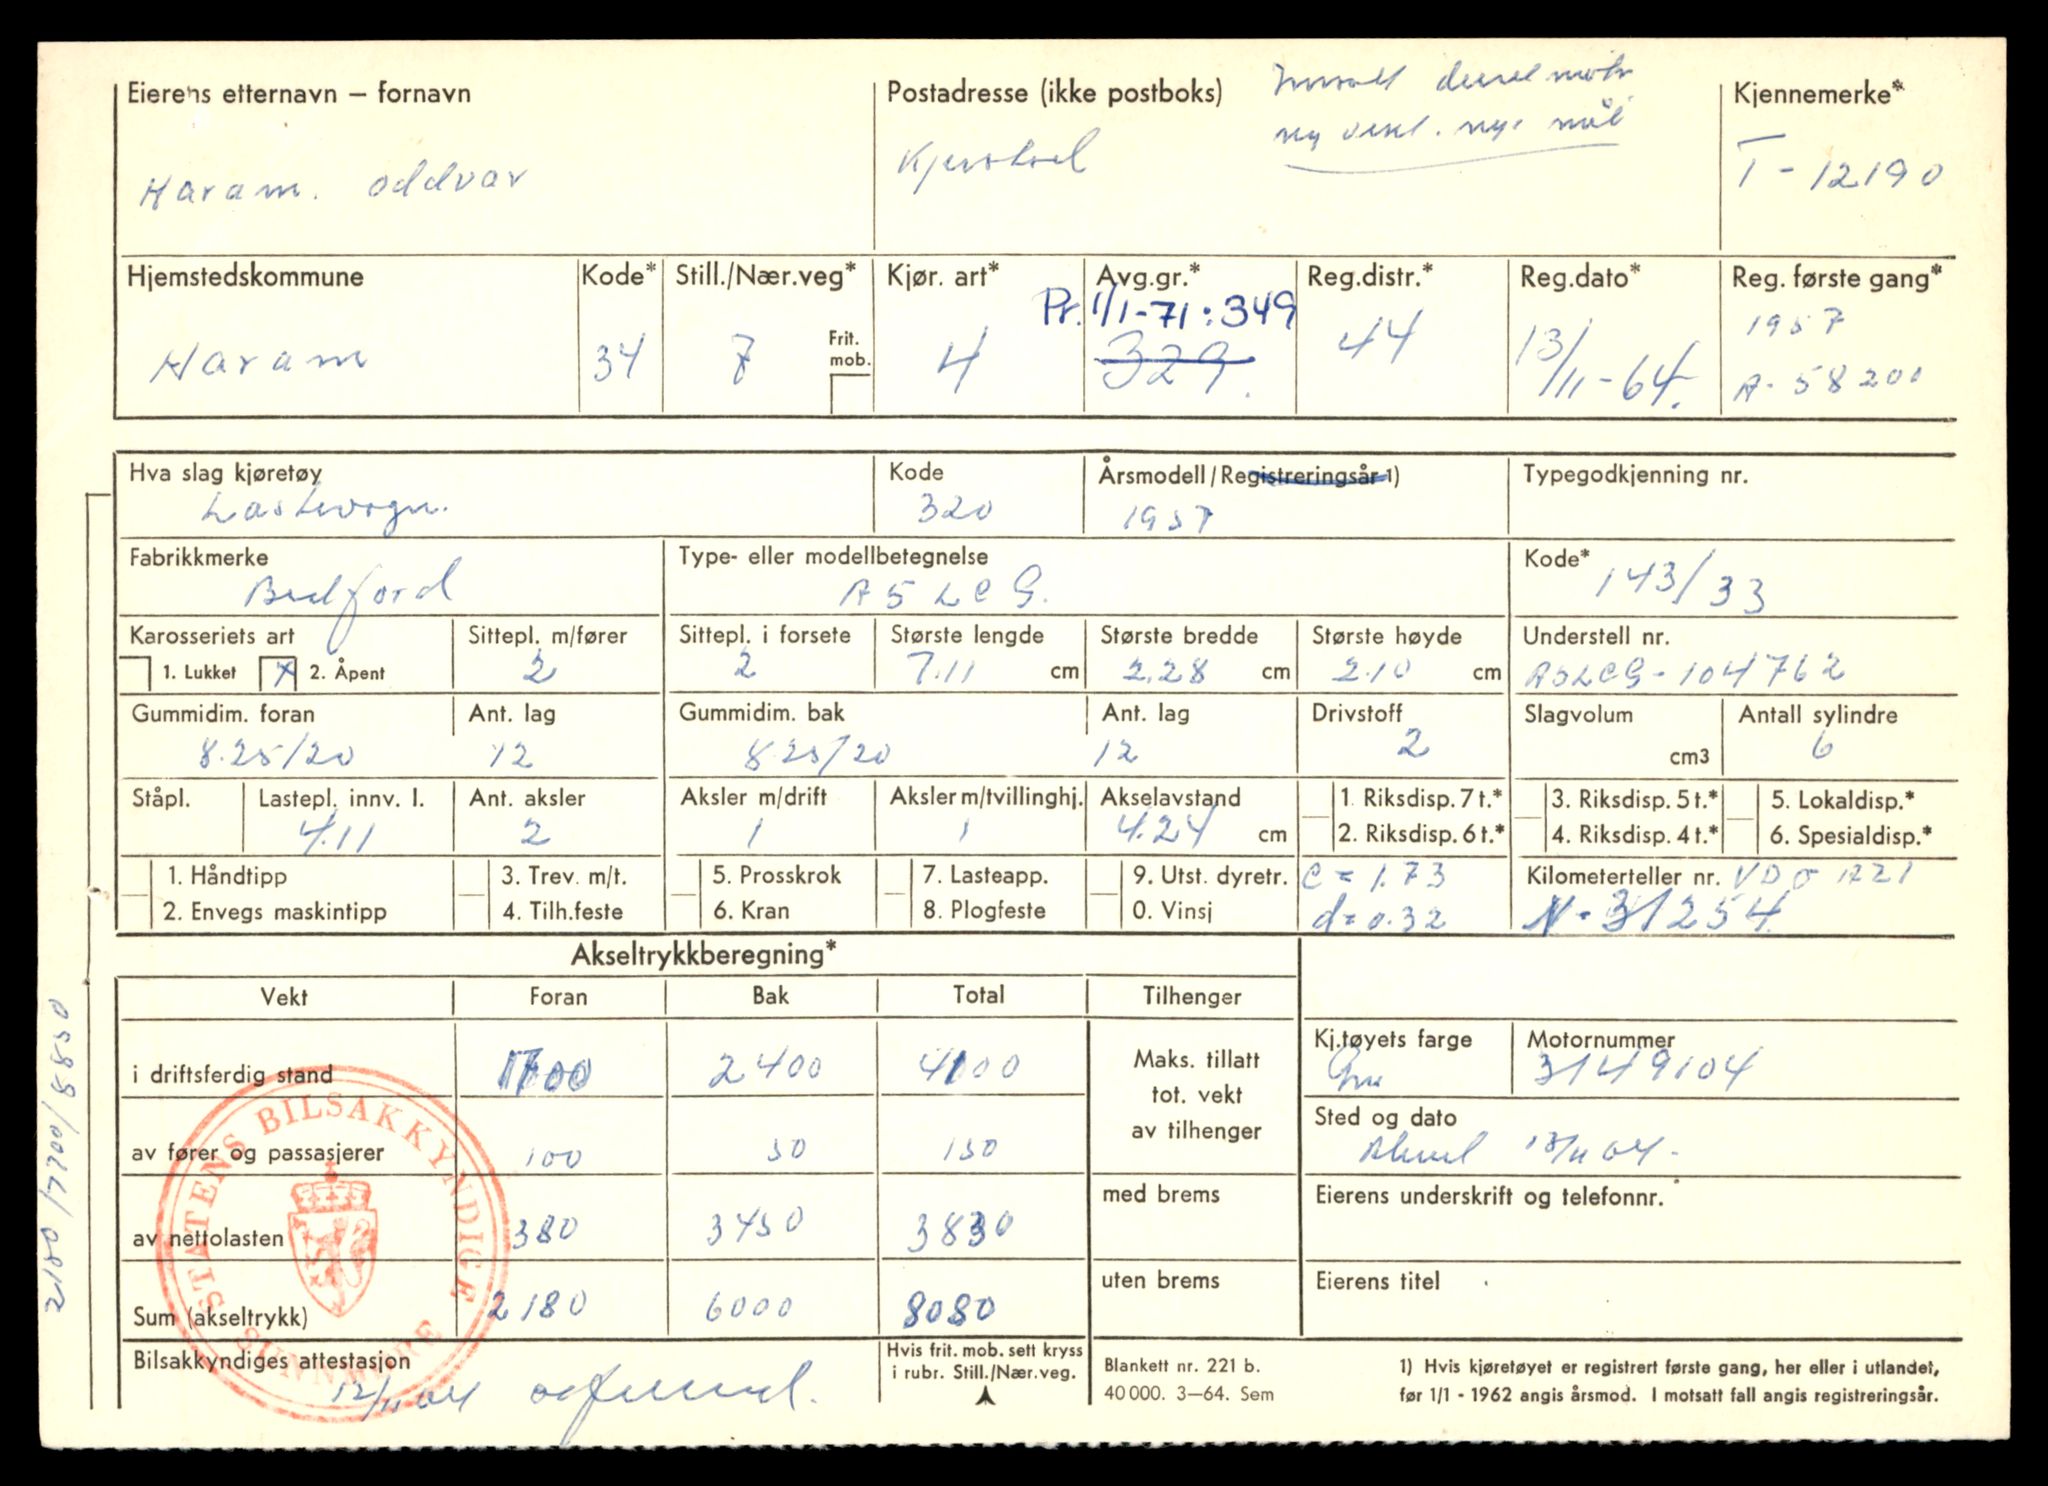 Eierens etternavn – fornavn
Haram. Oddvar
Postadresse (ikke postboks)
ny vekt. nye mål
Kjennemerke*
T - 12190
Hjemstedskommune
Haram
Kode*
34
Still./Nær.veg*
7
Frit. mob.
Kjør. art*
4
Avg.gr.*
Pr. 1/1-71: 349
329.
Reg.distr.*
44
Reg.dato*
13/11-64.
Reg. første gang*
1957
A- 58200
Hva slag kjøretøy
Lastevogn.
Kode
320
Årsmodell/Registreringsår 1)
1957
Typegodkjenning nr.
Fabrikkmerke
Bedford
Type- eller modellbetegnelse
A5LCG.
Kode*
143/33
Karosseriets art
1. Lukket
X 2. Åpent
Sittepl. m/fører
2
Sittepl. i forsete
2
Største lengde
7.11 cm
Største bredde
2.28 cm
Største høyde
2.10 cm
Understell nr.
A5LCG-104762
Gummidim. foran
8.25/20
Ant. lag
12
Gummidim. bak
8.25/20
Ant. lag
12
Drivstoff
2
Slagvolum
cm3
Antall sylindre
6
Ståpl.
Lastepl. innv. l.
4.11
Ant. aksler
2
Aksler m/drift
1
Aksler m/tvillinghj.
1
Akselavstand
4.24 cm
1. Riksdisp. 7 t.*
2. Riksdisp. 6 t.*
3. Riksdisp. 5 t.*
4. Riksdisp. 4 t.*
5. Lokaldisp.*
6. Spesialdisp.*
1. Håndtipp
2. Envegs maskintipp
3. Trev. m/t.
4. Tilh.feste
5. Prosskrok
6. Kran
7. Lasteapp.
8. Plogfeste
9. Utst. dyretr.
0. Vinsj
c = 1.73
d = 0.32
Kilometerteller nr. VDO 1221
N-31254.
Akseltrykkberegning*
Vekt
Foran
Bak
Total
Tilhenger
i driftsferdig stand
1700
2400
4100
Maks. tillatt
tot. vekt
av tilhenger
av fører og passasjerer
100
50
150
av nettolasten
380
3450
3830
med brems
Sum (akseltrykk)
2180
6000
8080
uten brems
Kj.tøyets farge
Motornummer
3149104
Sted og dato
13/11 64.
Eierens underskrift og telefonnr.
Eierens titel
Bilsakkyndiges attestasjon
12/11 64
Hvis frit. mob. sett kryss
i rubr. Still./Nær.veg.
Blankett nr. 221 b.
40 000. 3–64. Sem
1) Hvis kjøretøyet er registrert første gang, her eller i utlandet,
før 1/1 - 1962 angis årsmod. I motsatt fall angis registreringsår.
STATENS BILSAKKYNDIGE
SUNNMØRE
2180/7700/8850